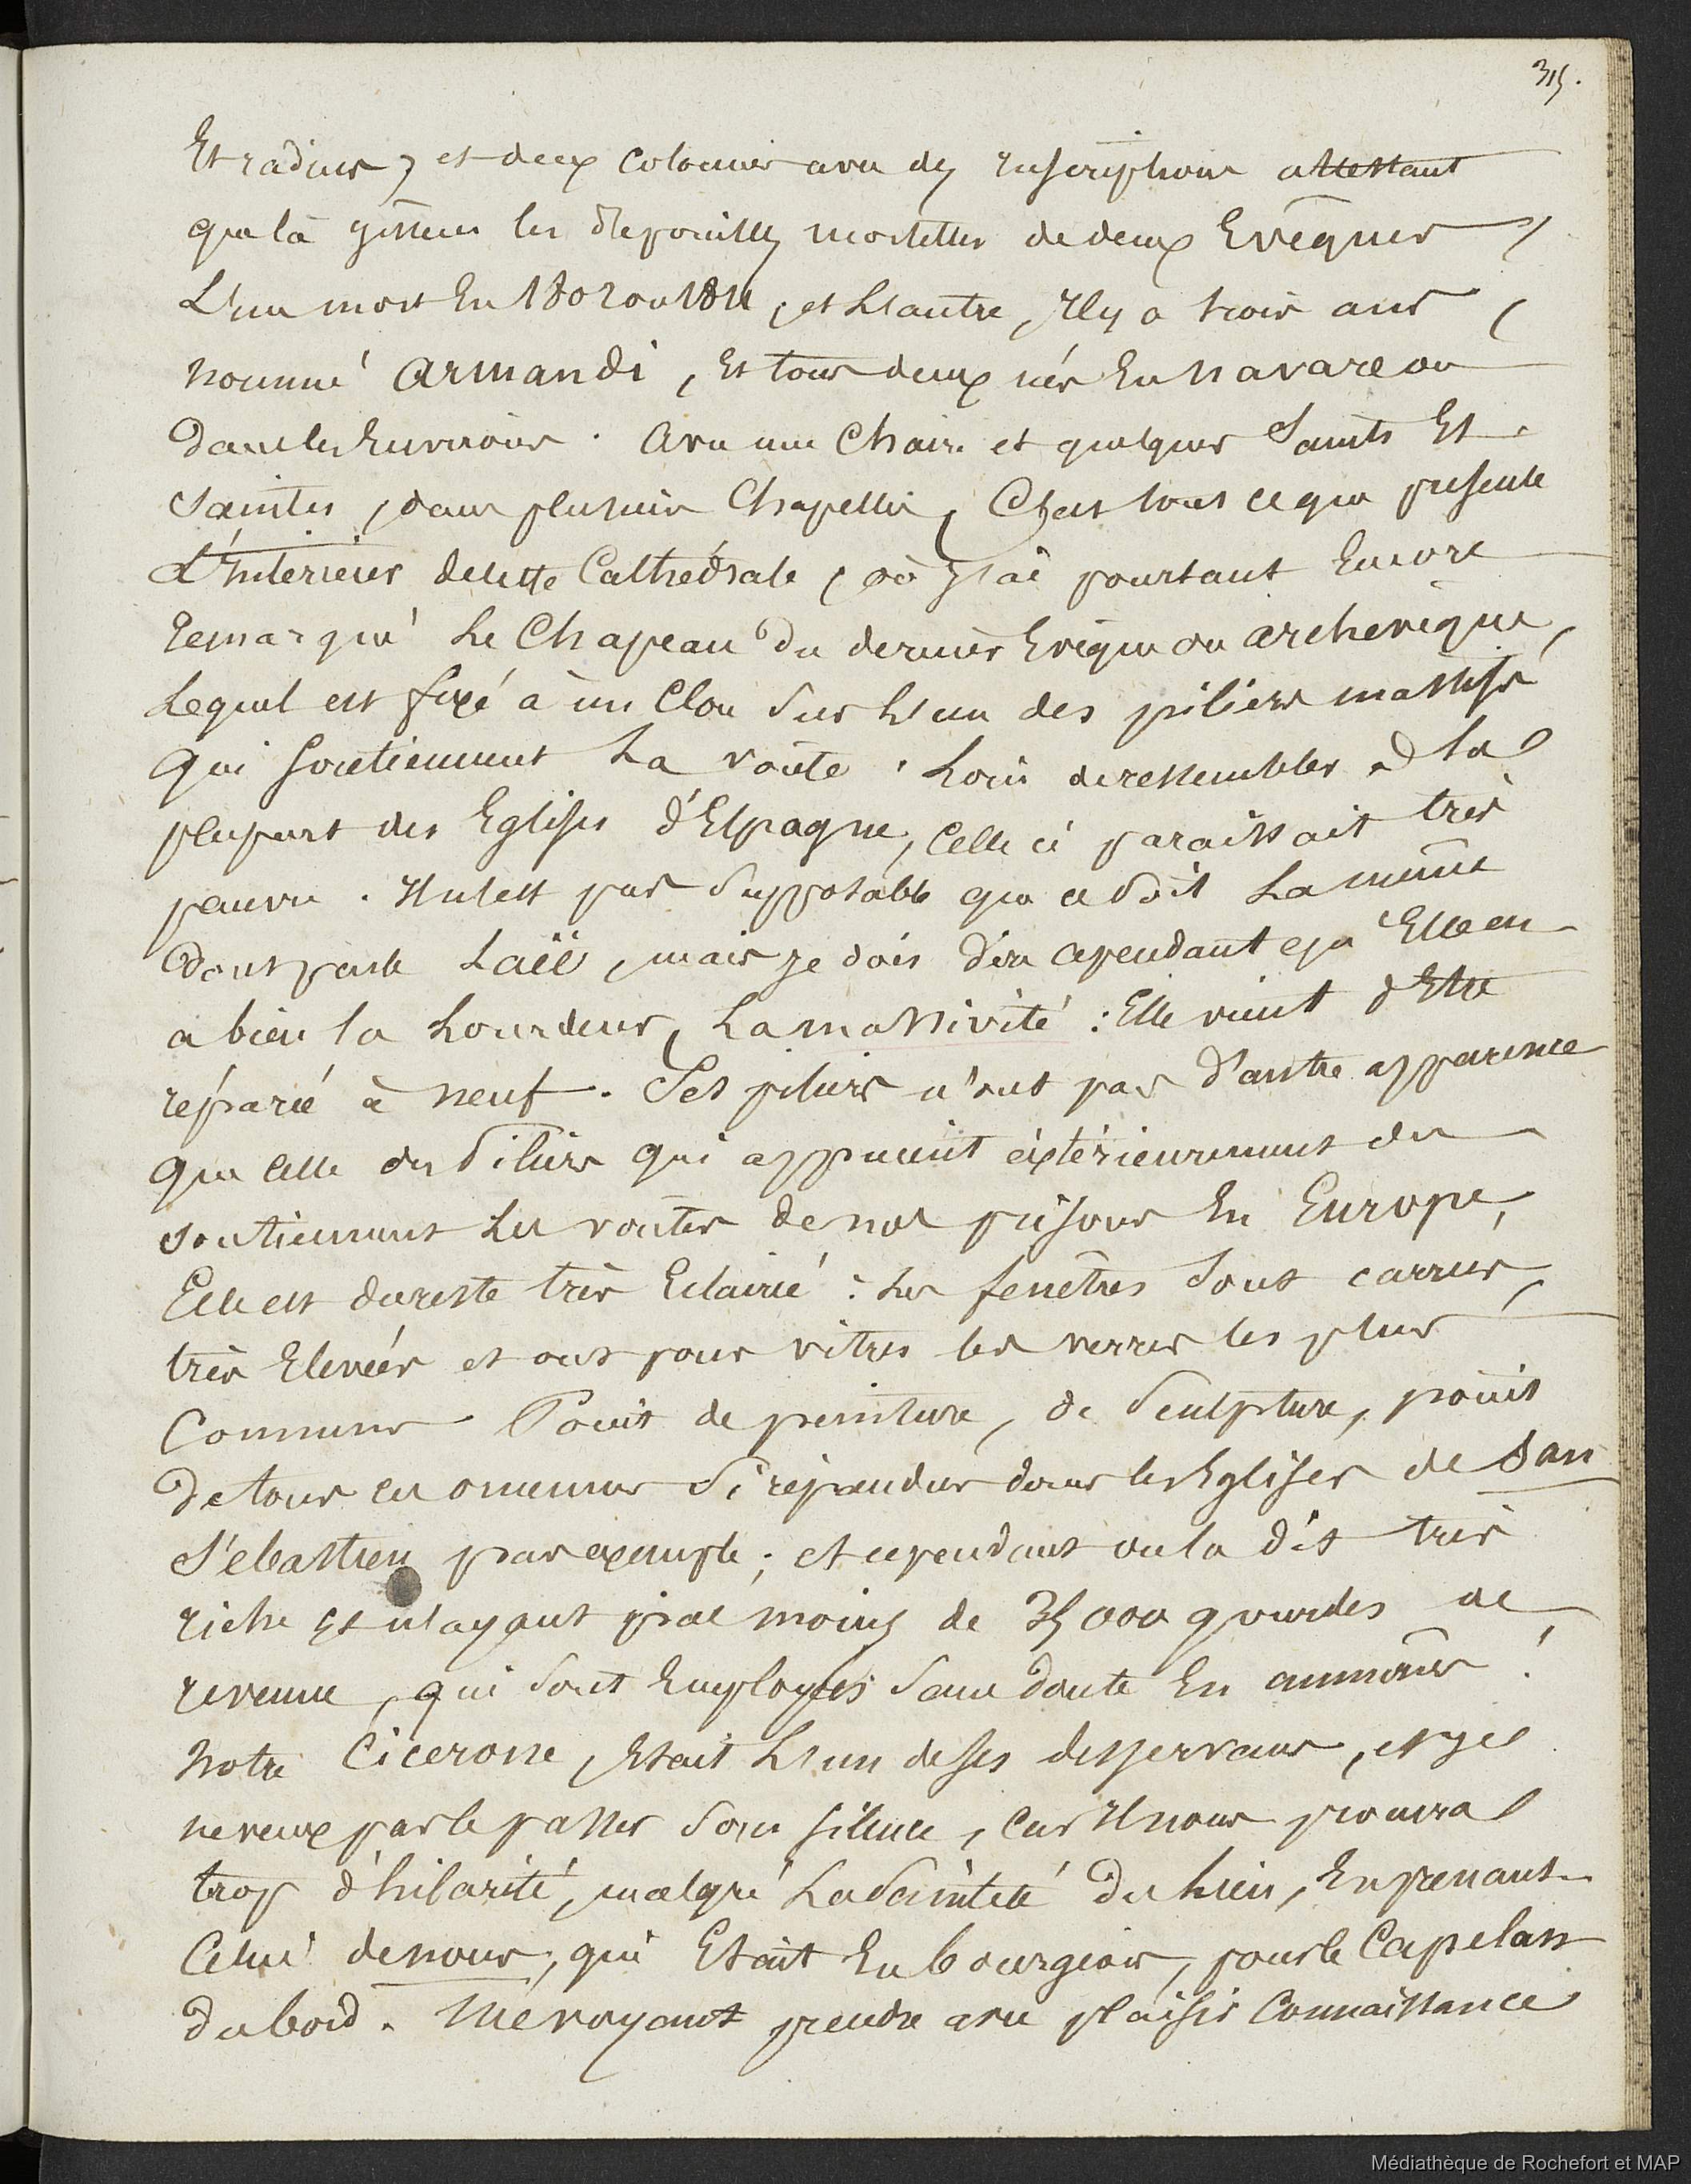 315.
Et radieux, et deux colonnes avec des Inscriptions attestant
que là gissent les dépouilles mortelles de deux Evêques,
L'un mort En 1802 ou 1811, et L'autre, Il y a trois ans,
nommé Armandi, Et tous deux nés En Navarre ou
dans les Environs. Avec une Chaire et quelques Saints Et
Saintes, dans plusieurs Chapelles, C'est tout ce que présente
L'Intérieur de cette Cathédrale, où J'ai pourtant Encore
remarqué Le Chapeau du dernier Evêque ou archevêque,
Lequel est fixé à un Clou sur L'un des piliers massifs
qui soutiennent La voûte. Loin de ressembler à la
plupart des Eglises d'Espagne, Celle ci paraissait très
pauvre. Il n'est pas supposable que ce soit La même
dont parle Laïë, mais je dois dire cependant qu'Elle en
a bien la Lourdeur, La massivité : Elle vient d'Etre
réparée à neuf. Ses piliers n'ont pas d'autre apparence
que celle des Piliers qui appuient extérieurement ou
soutiennent Les voûtes de nos prisons En Europe,
Elle est du reste très Eclairée : Les fenêtres sont carrées,
très Elevées et ont pour vitres les verres les plus
Communs. Point de peinture, de Sculpture, point
de tous ces ornemens si répandus dans les Eglises de San
Sébastien par exemple ; et cependant on la dit très
riche et n'ayant pas moins de 35 000 gourdes de
revenu, qui sont Employés sans doute En aumônes !
Notre Cicerone, Etait L'un de ses desservans, et je
ne veux pas le passer sous silence, car Il nous procura
trop d'hilarité, malgré La Sainteté Du Lieu, En prenant
Celui de nous, qui Etait En bourgeois, pour le Capelan
du bord. Me voyant prendre avec plaisir Connaissance
Médiathèque de Rochefort et MAP